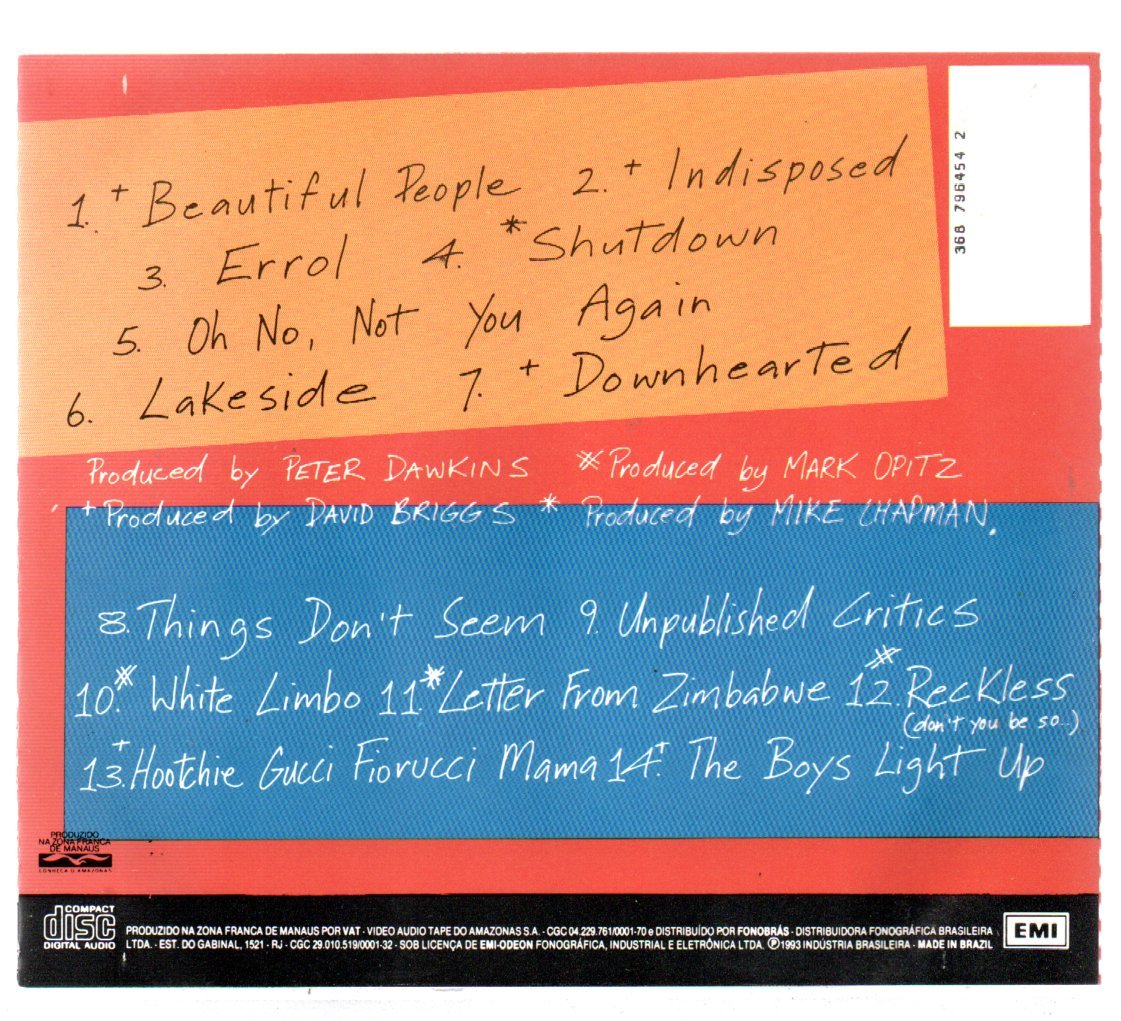 1. + Beautiful People 2. + Indisposed
3. Errol 4. * Shutdown
5. Oh No, Not You Again
6. Lakeside 7. + Downhearted
368 796454 2
Produced by PETER DAWKINS # Produced by MARK OPITZ
+ Produced by DAVID BRIGGS * Produced by MIKE CHAPMAN.
8. Things Don't Seem 9. Unpublished Critics
10. # White Limbo 11. * Letter From Zimbabwe 12. # Reckless
(don't you be so..)
13. + Hootchie Gucci Fiorucci Mama 14. + The Boys Light Up
PRODUZIDO
NA ZONA FRANCA
DE MANAUS
CONHEÇA O AMAZONAS
COMPACT
disc
DIGITAL AUDIO
PRODUZIDO NA ZONA FRANCA DE MANAUS POR VAT - VIDEO AUDIO TAPE DO AMAZONAS S.A. - CGC 04.229.761/0001-70 e DISTRIBUÍDO POR FONOBRÁS - DISTRIBUIDORA FONOGRÁFICA BRASILEIRA
LTDA. - EST. DO GABINAL, 1521 - RJ - CGC 29.010.519/0001-32 - SOB LICENÇA DE EMI-ODEON FONOGRÁFICA, INDUSTRIAL E ELETRÔNICA LTDA. ℗ 1993 INDÚSTRIA BRASILEIRA - MADE IN BRAZIL
EMI